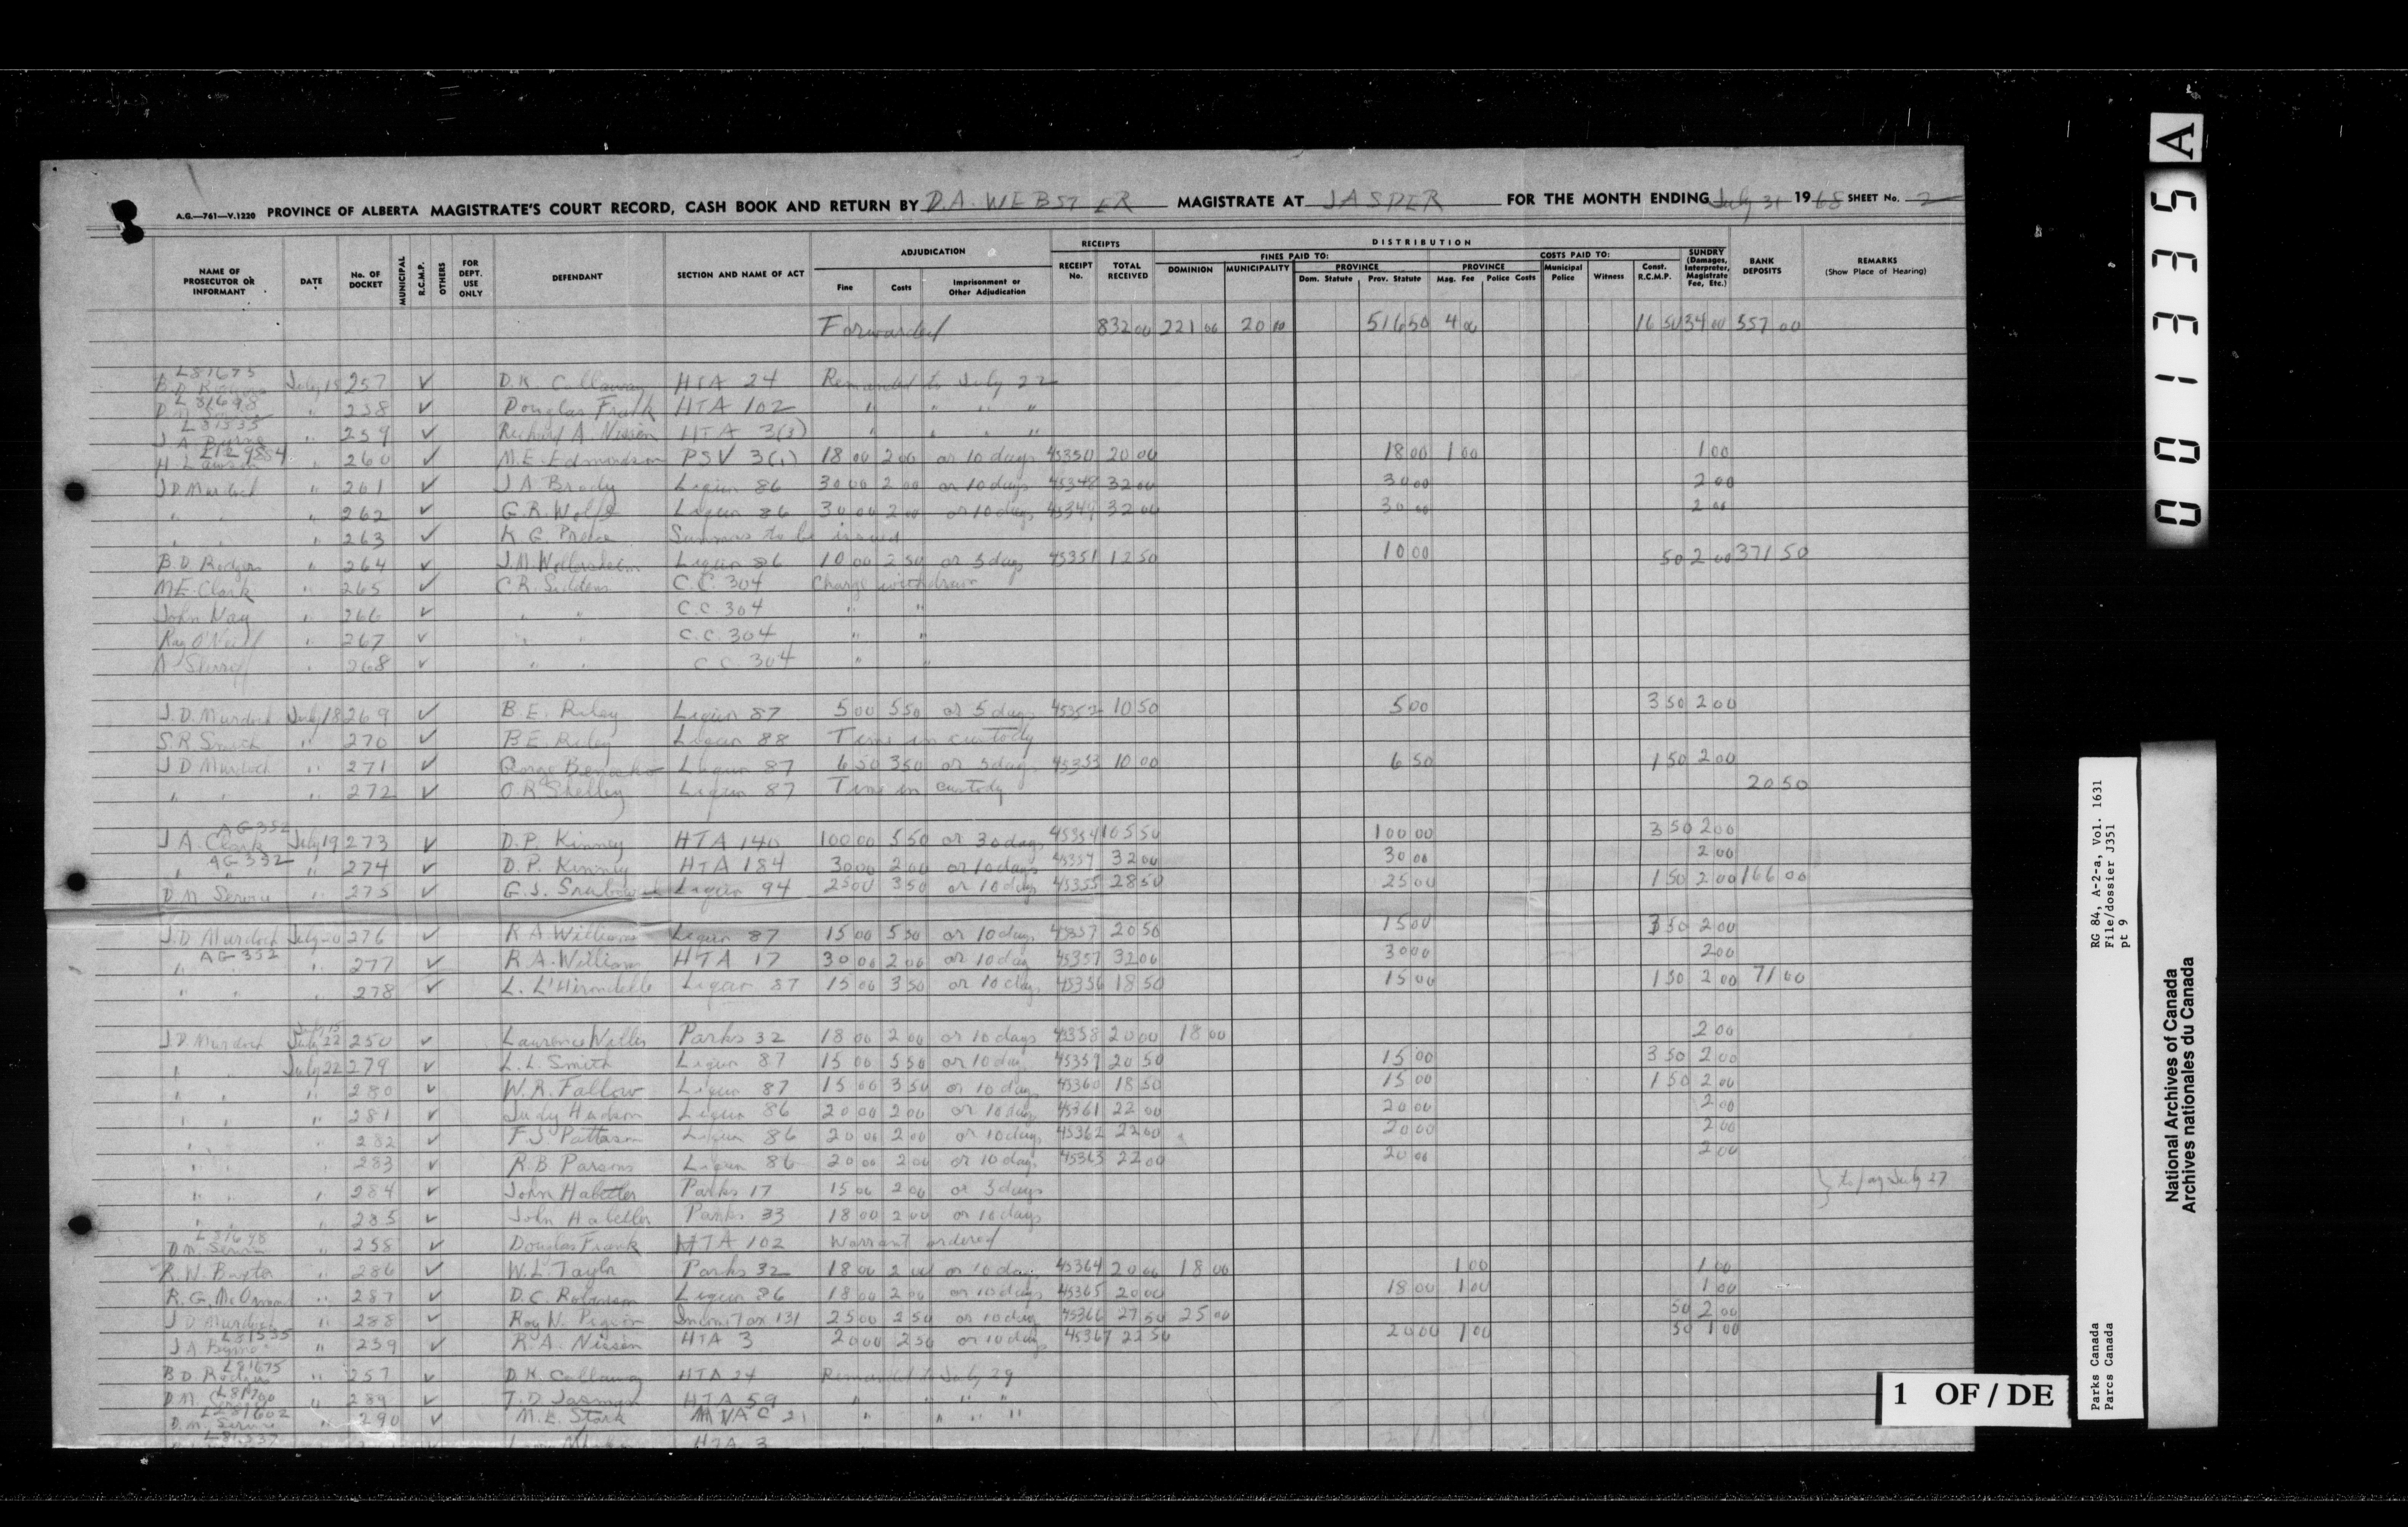 A.G.—761—V.1220 PROVINCE OF ALBERTA MAGISTRATE'S COURT RECORD, CASH BOOK AND RETURN BY D.A. WEBSTER MAGISTRATE AT JASPER FOR THE MONTH ENDING July 31 1968 SHEET No. 2
NAME OF PROSECUTOR OR INFORMANT DATE No. OF DOCKET MUNICIPAL R.C.M.P. OTHERS FOR DEPT. USE ONLY DEFENDANT SECTION AND NAME OF ACT ADJUDICATION Fine Costs Imprisonment or Other Adjudication RECEIPTS RECEIPT No. TOTAL RECEIVED DISTRIBUTION FINES PAID TO: DOMINION MUNICIPALITY PROVINCE Dom. Statute Prov. Statute COSTS PAID TO: PROVINCE Mag. Fee Police Costs Municipal Police Witness Const. R.C.M.P. SUNDRY (Damages, Interpreter, Magistrate Fee, Etc.) BANK DEPOSITS REMARKS (Show Place of Hearing)
Forwarded 832 00 221 00 20 00 516 50 4 00 16 50 34 00 557 00
L81675
July 18 257 ✓ D.K. Callaway HTA 24 Remanded to July 22
L81698
" 258 ✓ Douglas Frank HTA 102 " " " "
L81535
" 259 ✓ Richard A. Nissen HTA 3(3) " " " "
H Lawson " 260 ✓ M.E. Edmondson PSV 3(1) 18 00 2 00 or 10 days 45350 20 00 18 00 1 00 1 00
J D Murdoch " 261 ✓ J A Brody Liquor 86 30 00 2 00 or 10 days 45348 32 00 30 00 2 00
" " " 262 ✓ G.R. Wolfe Liquor 86 30 00 2 00 or 10 days 45349 32 00 30 00 2 00
" " " 263 ✓ K G. Summons to be issued
B.D. Rodgers " 264 ✓ Liquor 86 10 00 2 50 or 5 days 45351 12 50 10 00 50 2 00 371 50
M.E. Clark " 265 ✓ C.R. Siddons C.C. 304 Charge withdrawn
John Nay " 266 ✓ " " C.C. 304 " "
Ray O'Neill " 267 ✓ " " C.C. 304 " "
" 268 ✓ " " C.C. 304 " "
J.D. Murdoch July 18 269 ✓ B.E. Riley Liquor 87 5 00 5 50 or 5 days 45352 10 50 5 00 3 50 2 00
S.R. Smith " 270 ✓ B E. Riley Liquor 88 Time in custody
J D Murdoch " 271 ✓ Liquor 87 6 50 3 50 or 5 days 45353 10 00 6 50 1 50 2 00
" " " 272 ✓ O.R. Shelley Liquor 87 Time in custody 20 50
AG 352
J.A. Clark July 19 273 ✓ D.P. Kinney HTA 140 100 00 5 50 or 30 days 45354 105 50 100 00 3 50 2 00
AG 352
" " " 274 ✓ D.P. Kinney HTA 184 30 00 2 00 or 10 days 45354 32 00 30 00 2 00
D M Servin " 275 ✓ G.S. Liquor 94 25 00 3 50 or 10 days 45355 28 50 25 00 1 50 2 00 166 00
J.D Murdoch July 20 276 ✓ R.A. Williams Liquor 87 15 00 5 50 or 10 days 45357 20 50 15 00 3 50 2 00
AG 352
" " " 277 ✓ R.A. William HTA 17 30 00 2 00 or 10 day 45357 32 00 30 00 2 00
" " " 278 ✓ L. L'Hirondelle Liquor 87 15 00 3 50 or 10 days 45356 18 50 15 00 1 50 2 00 71 00
July 15
J.D Murdoch July 22 250 ✓ Lawrence Parks 32 18 00 2 00 or 10 days 45358 20 00 18 00 2 00
" " July 22 279 ✓ L.L. Smith Liquor 87 15 00 5 50 or 10 day 45359 20 50 15 00 3 50 2 00
" " " 280 ✓ W.R. Fallow Liquor 87 15 00 3 50 or 10 day 45360 18 50 15 00 1 50 2 00
" " " 281 ✓ Judy Hudson Liquor 86 20 00 2 00 or 10 days 45361 22 00 20 00 2 00
" " " 282 ✓ F.J. Patterson Liquor 86 20 00 2 00 or 10 days 45362 22 00 20 00 2 00
" " " 283 ✓ R.B. Parsons Liquor 86 20 00 2 00 or 10 day 45363 22 00 20 00 2 00
" " " 284 ✓ John Habetler Parks 17 15 00 2 00 or 5 days } to pay July 27
" " " 285 ✓ John Habetler Parks 33 18 00 2 00 or 10 days
L81698
D.M. Servin " 258 ✓ Douglas Frank HTA 102 Warrant ordered
R.W. Baxter " 286 ✓ W.L. Taylor Parks 32 18 00 2 00 or 10 days 45364 20 00 18 00 1 00 1 00
R.G. " 287 ✓ D.C. Robinson Liquor 86 18 00 2 00 or 10 days 45365 20 00 18 00 1 00 1 00
J D Murdoch " 288 ✓ Roy N. Income Tax 131 25 00 2 50 or 10 day 45366 27 50 25 00 50 2 00
L81535
J.A. " 259 ✓ R.A. Nissen HTA 3 20 00 2 50 or 10 day 45367 22 50 20 00 1 00 50 1 00
L81675
B D. Rodgers " 257 ✓ D.K. Callaway HTA 24 Remanded to July 29
D.M. Servin " 289 ✓ HTA 59 " " " "
D.M. Servin " 290 ✓ M.E. Stark MVAC 21 " " " "
L81537
HTA 3
001335 A
1 OF/DE
Parks Canada RG 84, A-2-a, Vol. 1631
Parcs Canada File/dossier J351
pt 9
National Archives of Canada
Archives nationales du Canada